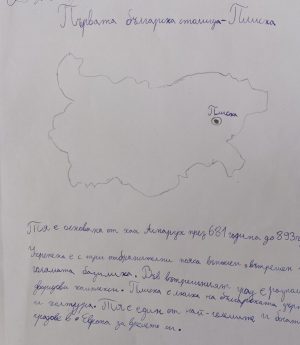 Първата българска столица - Плиска
Плиска
Тя е основана от хан Аспарух през 681 година до 893
Укрепена е с три отбранителни пояса външен, вътрешен
голямата базилика. Във вътрешния град е
дворцови комплекси. Плиска е люлка на българската
и култура. Тя е един от най-големите и богати
градове в Европа за времето си.